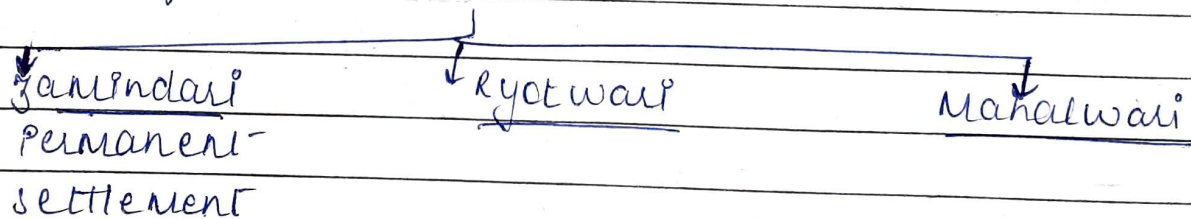 Zamindari Ryotwari Mahalwari
Permanent
settlement